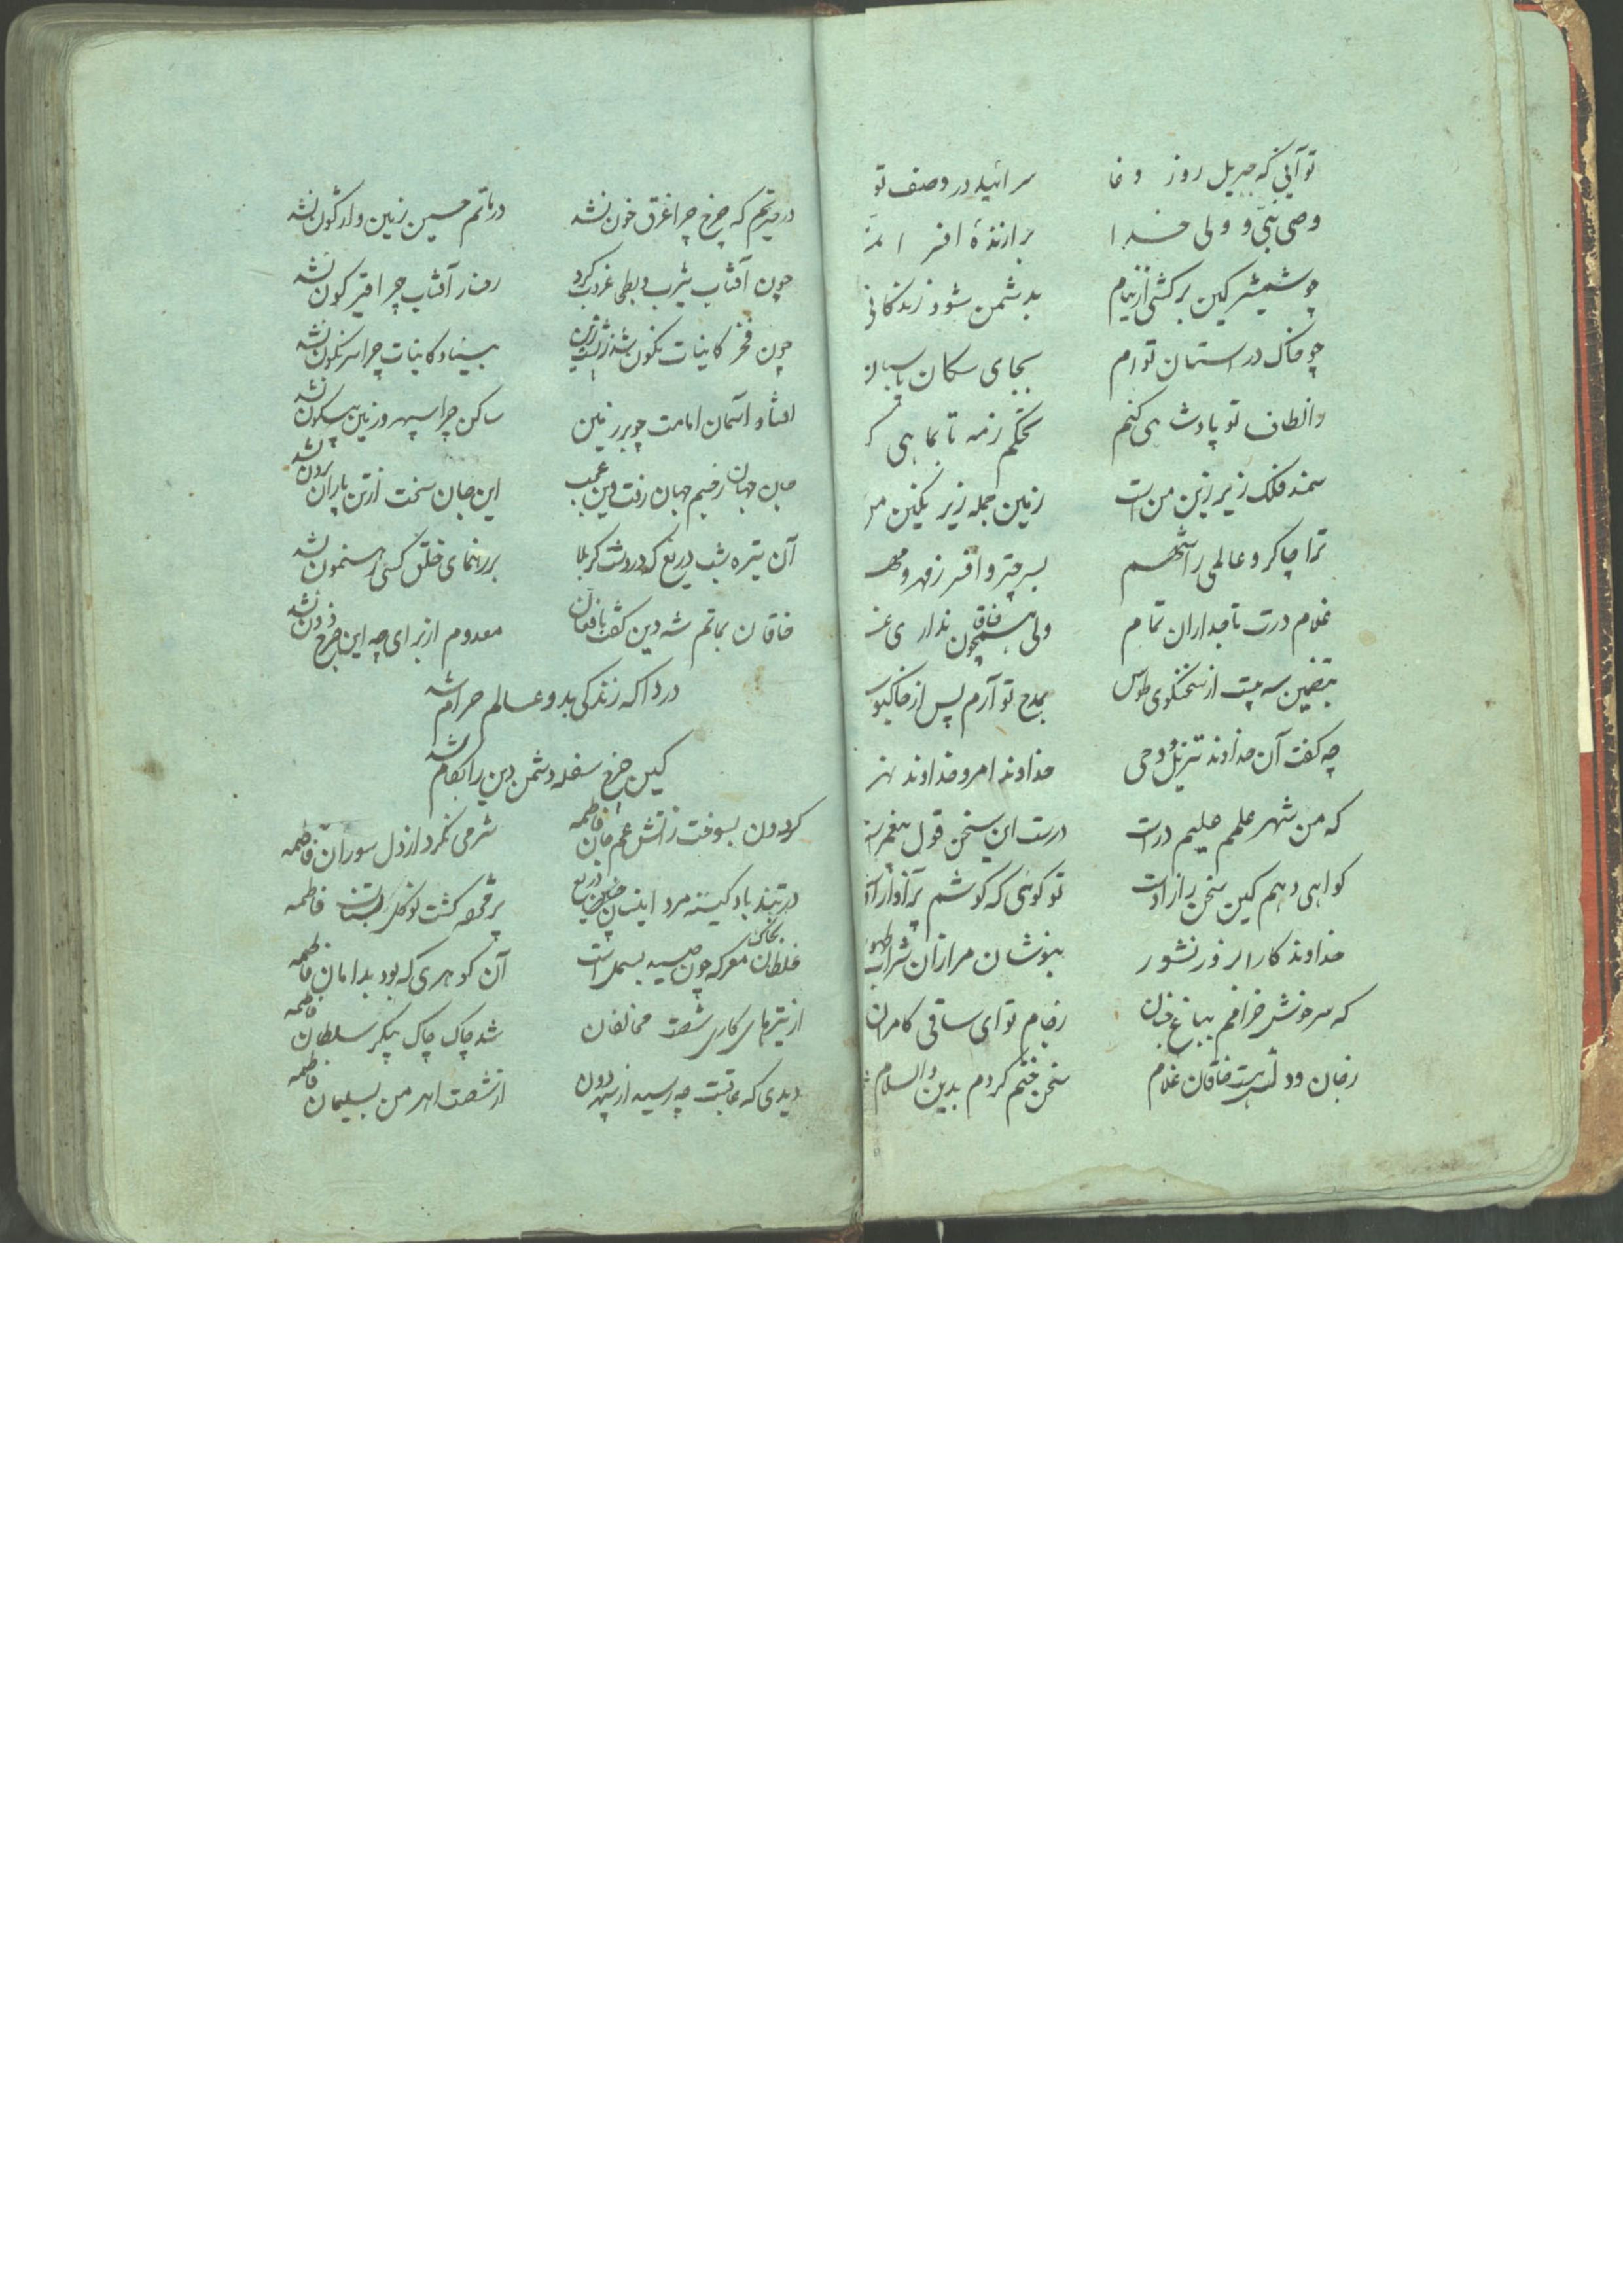 تو آنی که جبریل روز وغا سراید در وصف تو
وصی نبی و ولی خدا برازندهٔ افسر
چو شمشیر کین برکشی از نیام بدشمن شود زندگانی
چو خاک در استان تو ام بجای سکان پاسبان
والطاف تو پادشاهی کنم بحکم زمه تا بماهی
سمند فلک زیر زین من است زمین جمله زیر نکین
ترا چاکر و عالمی را شهم بسر چتر و افسر ز مهر و مهم
غلام درت تاجداران تمام ولی همچون خاقان نداری
بتضمین سه بیت از سخنکوی طوس بمدح تو آرم پس از خاکبوس
چه کفت آن خداوند تنزیل و وحی خداوند امر و خداوند نهی
که من شهر علمم علیم در است درست این سخن قول پیغمبر است
کواهی دهم کین سخن راز اوست تو کوئی که کوشم بر آواز اوست
خداوند کارا بروز نشور بنوشان مرا زان شراب طهور
که سرخوش خرامم بباغ جنان ز جام تو ای ساقی کامران
ز جان و دلت هست خاقان غلام سخن ختم کردم بدین والسلام
در حیرتم که چرخ چرا غرق خون نشد در ماتم حسین زمین واژکون نشد
چون آفتاب یثرب و بطحی غروب کرد رخسار آفتاب چرا قیرکون نشد
چون فخر کاینات نکون شد ز پشت زین بنیاد کاینات چرا سرنکون نشد
افتاد آسمان امامت چو بر زمین ساکن چرا سپهر و زمین بی سکون نشد
جان جهان ز جسم جهان رفت وین عجب این جان سخت از تن یاران برون نشد
آن تیره شب دریغ که در دشت کربلا بر رهنمای خلق کسی رهنمون نشد
خاقان بماتم شه دین کفت با فغان معدوم از برای چه این چرخ دون نشد
دردا که زندکی بدو عالم حرام شد
کین چرخ سفله دشمن دین را بکام شد
کردون بسوخت ز آتش غم جان فاطمه شرمی نکرد از دل سوزان فاطمه
در تندباد کینه مرد اینسان دریغ پژمرده کشت نوکل بستان فاطمه
غلطان بخاک معرکه چون صید بسمل است آن کوهری که بود بدامان فاطمه
از تیرهای کاری شصت مخالفان شد چاک چاک پیکر سلطان فاطمه
دیدی که عاقبت چه رسید از سپهر دون از شصت اهرمن بسلیمان فاطمه